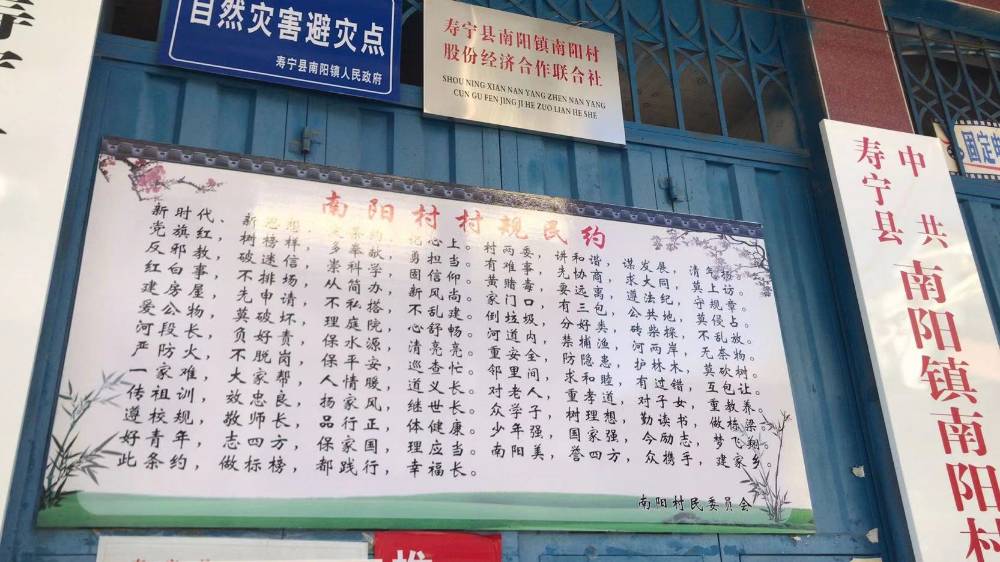 自然灾害避灾点
寿宁县南阳镇人民政府
寿宁县南阳镇南阳村
股份经济合作联合社
SHOU NING XIAN NAN YANG ZHEN NAN YANG
CUN GU FEN JING JI HE ZUO LIAN HE SHE
南阳村村规民约
新时代，新思想，条心上。村两委，讲和谐，谋发展，清气
党旗红，树榜样，多奉，勇担当。有难事，先协商，求大同，莫上访。
反邪教，破迷信，崇科学，固信仰。黄赌毒，要远离，遵法纪，守规章。
红白事，不排场，从简办，新风尚。家门口，有三包，公共地，莫侵占。
建房屋，先申请，不私搭，不乱建。倒垃圾，分好类，砖柴，不乱放。
爱公物，莫破坏，理庭院，心舒畅。河道内，禁捕渔，河两岸，无物。
河段长，负好责，保水源，清亮亮。重安全，防隐患，护林木，莫砍树。
严防火，不脱岗，保平安，巡查忙。邻里间，求和睦，有过错，互包让。
一家难，大家帮，人情暖，道义长。对老人，重孝道，对子女，重教养。
传祖训，效忠良，扬家风，继世长。众学子，树理想，勤读书，做栋梁。
遵校规，敬师长，品行正，体健康。少年强，国家强，今励志，梦飞翔。
好青年，志四方，保家国，理应当。南阳美，誉四方，众携手，建家乡。
此条约，做标榜，都践行，幸福长。
南阳村民委员会
中共
寿宁县
南阳镇南阳村
固定